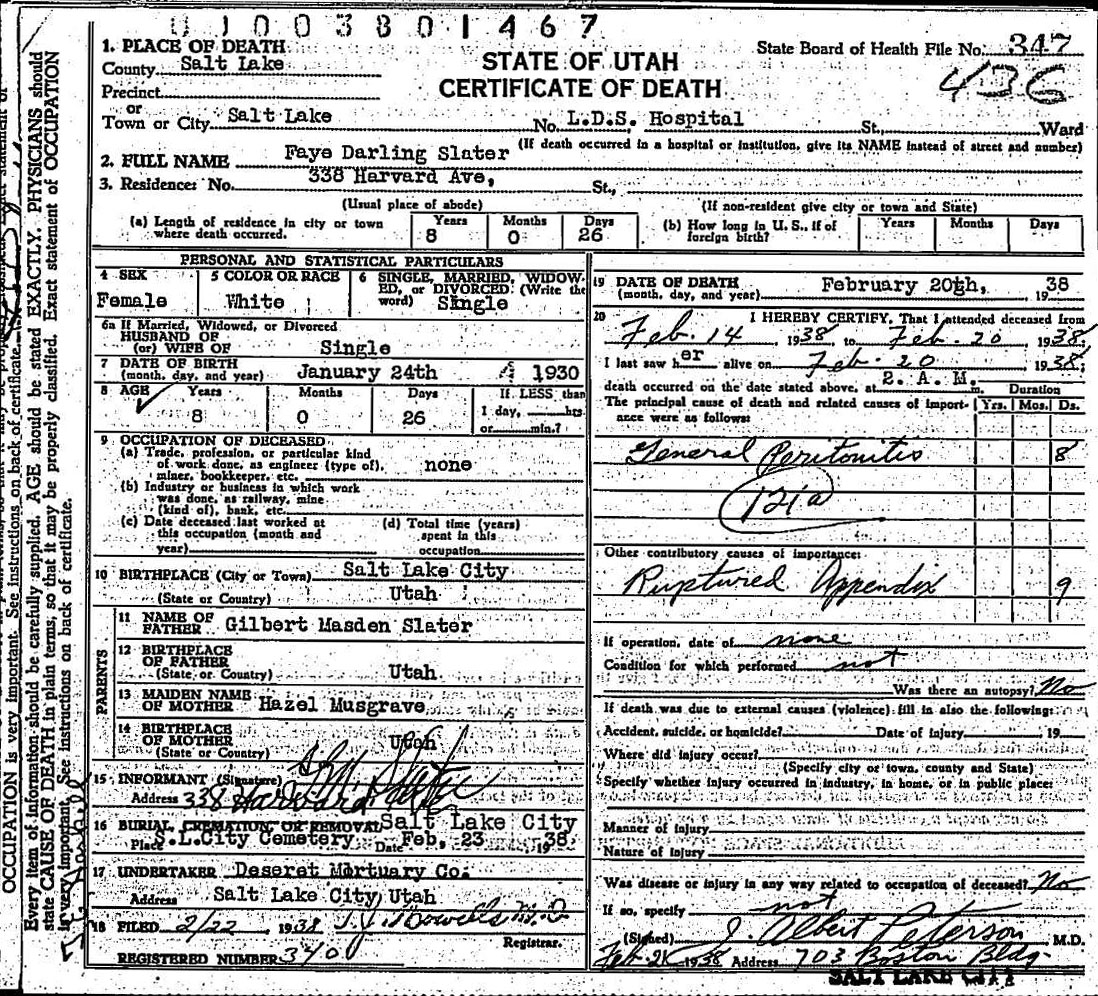 01003801467
1. PLACE OF DEATH
County Salt Lake
Precinct
or
Town or City Salt Lake
STATE OF UTAH
CERTIFICATE OF DEATH
State Board of Health File No. 347
436
No. L.D.S. Hospital St., Ward
(If death occurred in a hospital or institution, give its NAME instead of street and number)
2. FULL NAME Faye Darling Slater
3. Residence: No. 338 Harvard Ave, St.,
(Usual place of abode)
(If non-resident give city or town and State)
(a) Length of residence in city or town where death occurred. Years 8 Months 0 Days 26
(b) How long in U. S., if of foreign birth? Years Months Days
PERSONAL AND STATISTICAL PARTICULARS
4 SEX Female
5 COLOR OR RACE White
6 SINGLE, MARRIED, WIDOWED, or DIVORCED: (Write the word) Single
6a If Married, Widowed, or Divorced
HUSBAND OF
(or) WIFE OF Single
7 DATE OF BIRTH
(month, day, and year) January 24th 1930
8 AGE Years 8 Months 0 Days 26
If LESS than
1 day, hrs.
or min.?
9 OCCUPATION OF DECEASED
(a) Trade, profession, or particular kind
of work done, as engineer (type of),
miner, bookkeeper, etc. none
(b) Industry or business in which work
was done, as railway, mine
(kind of), bank, etc.
(c) Date deceased last worked at
this occupation (month and
year)
(d) Total time (years)
spent in this
occupation
10 BIRTHPLACE (City or Town) Salt Lake City
(State or Country) Utah
PARENTS
11 NAME OF
FATHER Gilbert Masden Slater
12 BIRTHPLACE
OF FATHER
(State or Country) Utah
13 MAIDEN NAME
OF MOTHER Hazel Musgrave
14 BIRTHPLACE
OF MOTHER
(State or Country) Utah
15 INFORMANT (Signature) Slater
Address 338 Harvard Ave
16 BURIAL, CREMATION, OR REMOVAL Salt Lake City
Place S.L.City Cemetery Date Feb, 23 1938
17 UNDERTAKER Deseret Mortuary Co.
Address Salt Lake City Utah
18 FILED 2/22 1938 M.D.
Registrar.
REGISTERED NUMBER 340
19 DATE OF DEATH
(month, day, and year) February 20th, 1938
20 I HEREBY CERTIFY, That I attended deceased from
Feb. 14 1938, to Feb. 20 1938,
I last saw her alive on Feb. 20 1938;
death occurred on the date stated above, at 2. A. M. m.
Duration
The principal cause of death and related causes of importance were as follows: Yrs. Mos. Ds.
General Peritonitis 8
121a
Other contributory causes of importance:
Ruptured Appendix 9
If operation, date of none
Condition for which performed not
Was there an autopsy? No
If death was due to external causes (violence) fill in also the following:
Accident, suicide, or homicide? Date of injury 19
Where did injury occur?
(Specify city or town, county and State)
Specify whether injury occurred in industry, in home, or in public place:
Manner of injury
Nature of injury
Was disease or injury in any way related to occupation of deceased? No
If so, specify not
(Signed) J. Albert Peterson M.D.
Feb 21 1938 Address 703 Boston Bldg.
SALT LAKE CITY
OCCUPATION is very important. See instructions on back of certificate.
Every item of information should be carefully supplied. AGE should be stated EXACTLY. PHYSICIANS should
state CAUSE OF DEATH in plain terms, so that it may be properly classified. Exact statement of OCCUPATION
is very important. See instructions on back of certificate.